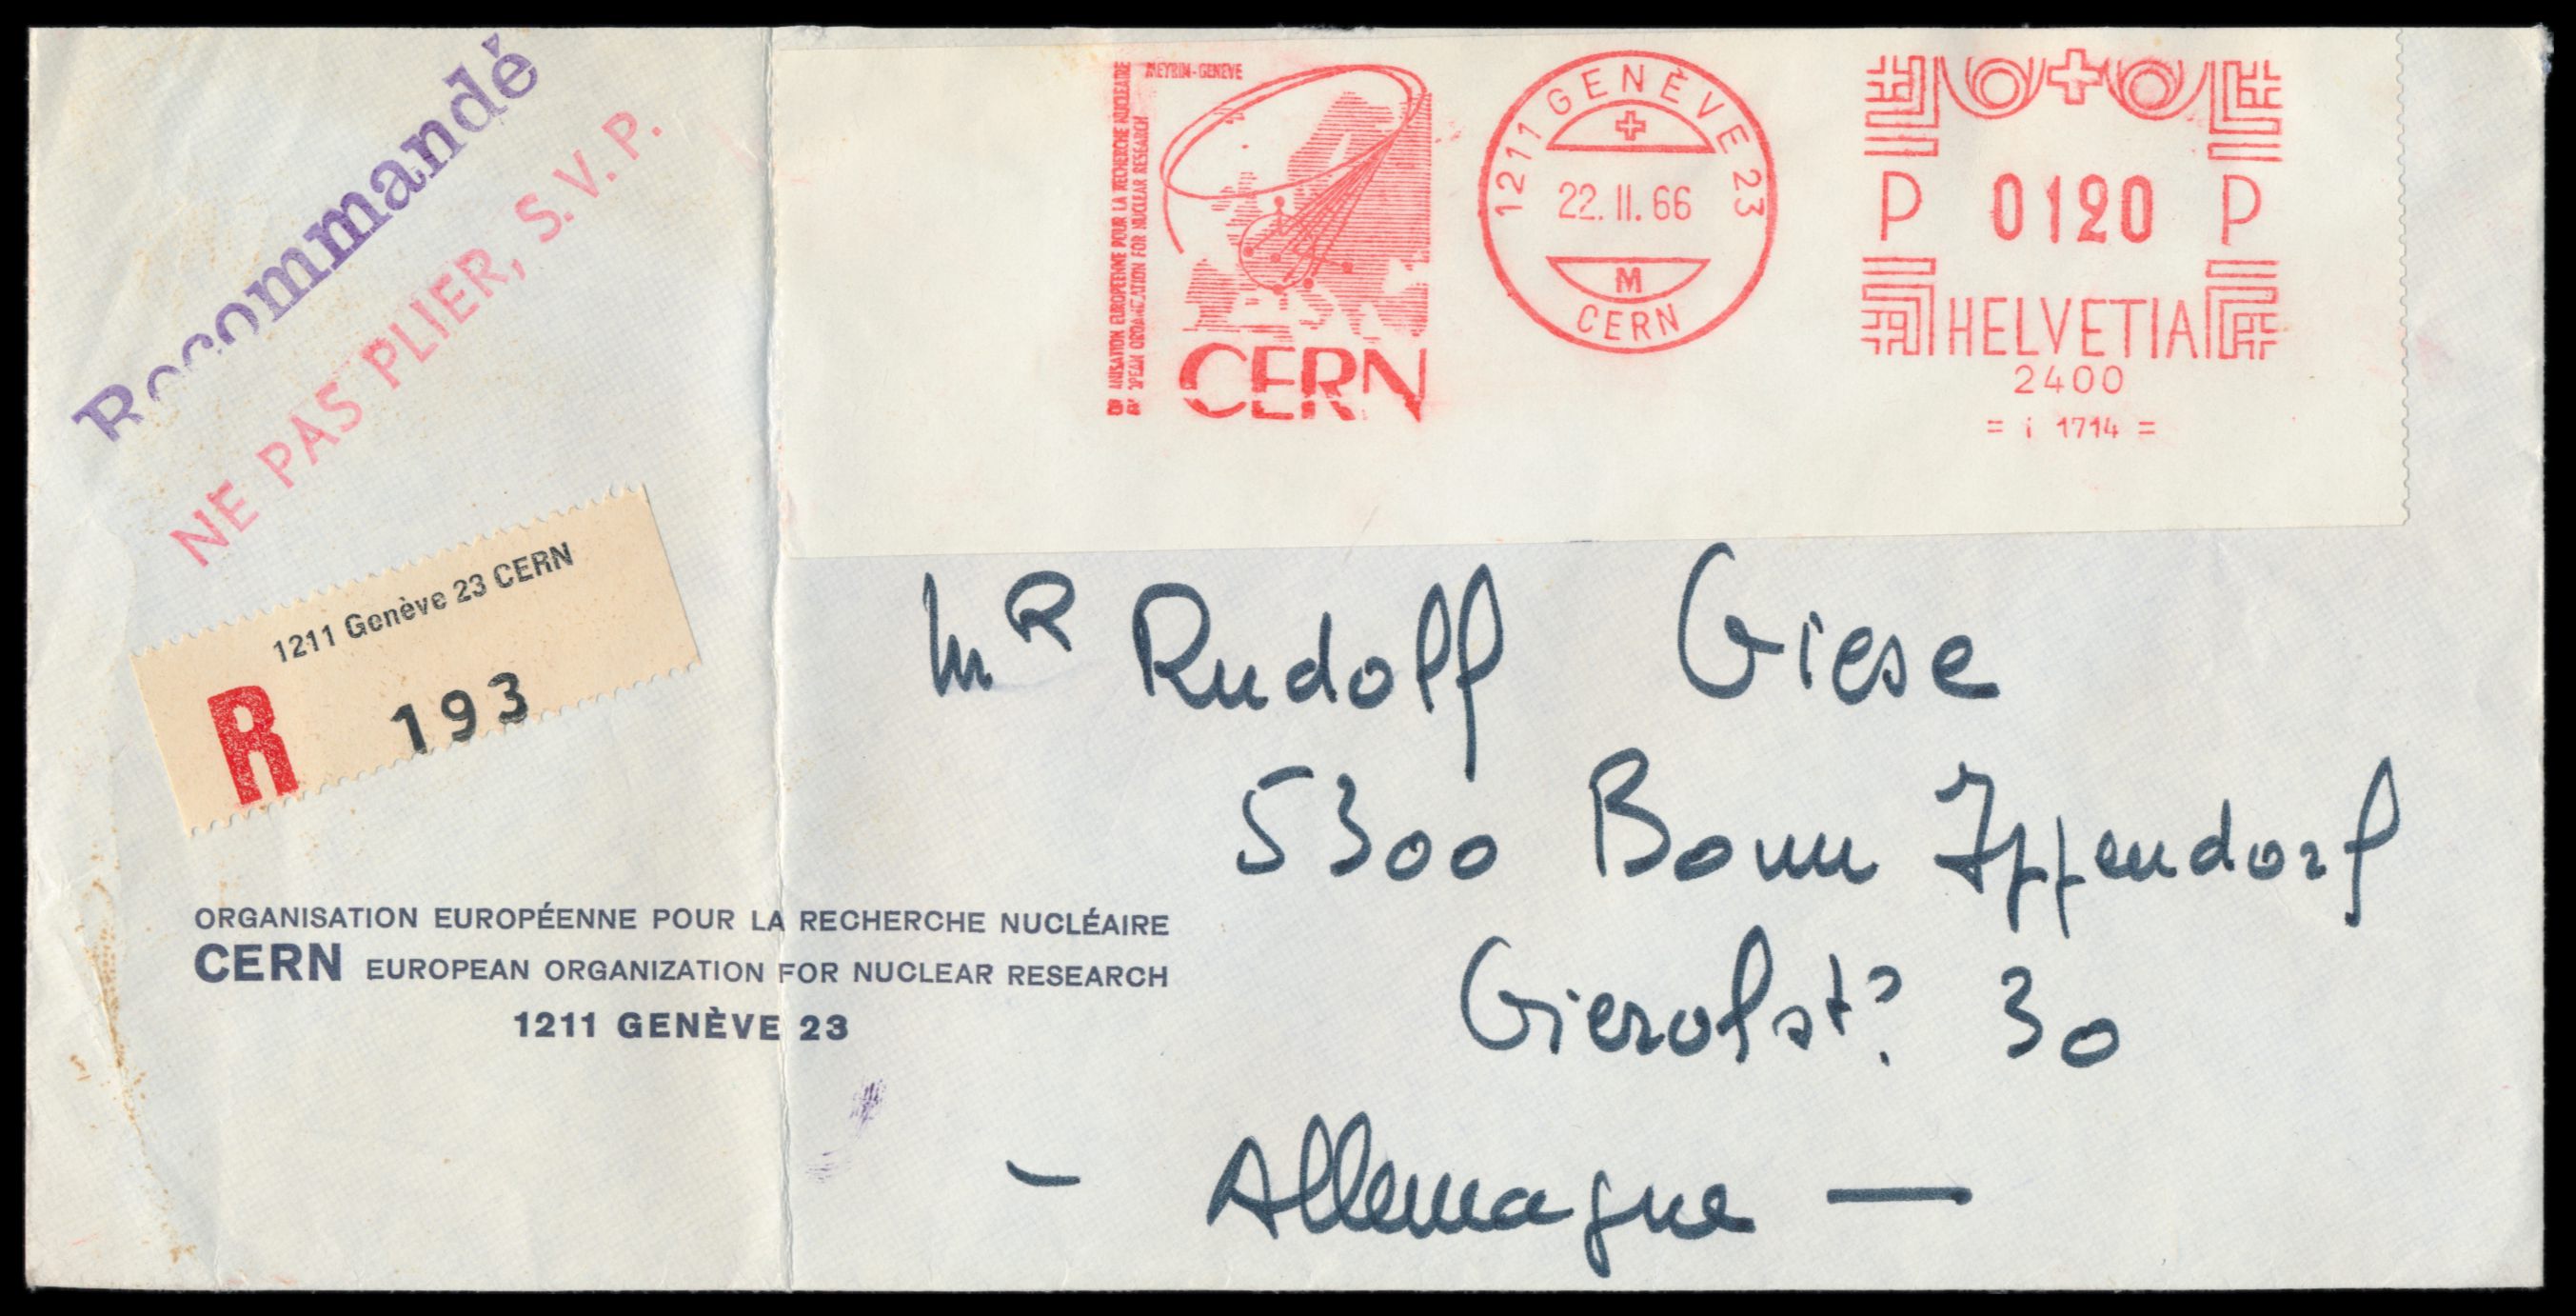 Recommandé
NE PAS PLIER, S.V.P.
1211 Genève 23 CERN
R 193
MEYRIN-GENÈVE
ANISATION EUROPÉENNE POUR LA RECHERCHE NUCLÉAIRE
OPEAN ORGANIZATION FOR NUCLEAR RESEARCH
CERN
1211 GENÈVE 23
22.II.66
M
CERN
P 0120 P
HELVETIA
2400
= i 1714 =
MR Rudolf Giese
5300 Bonn Ippendorf
Gierolstr. 30
- Allemagne -
ORGANISATION EUROPÉENNE POUR LA RECHERCHE NUCLÉAIRE
CERN EUROPEAN ORGANIZATION FOR NUCLEAR RESEARCH
1211 GENÈVE 23